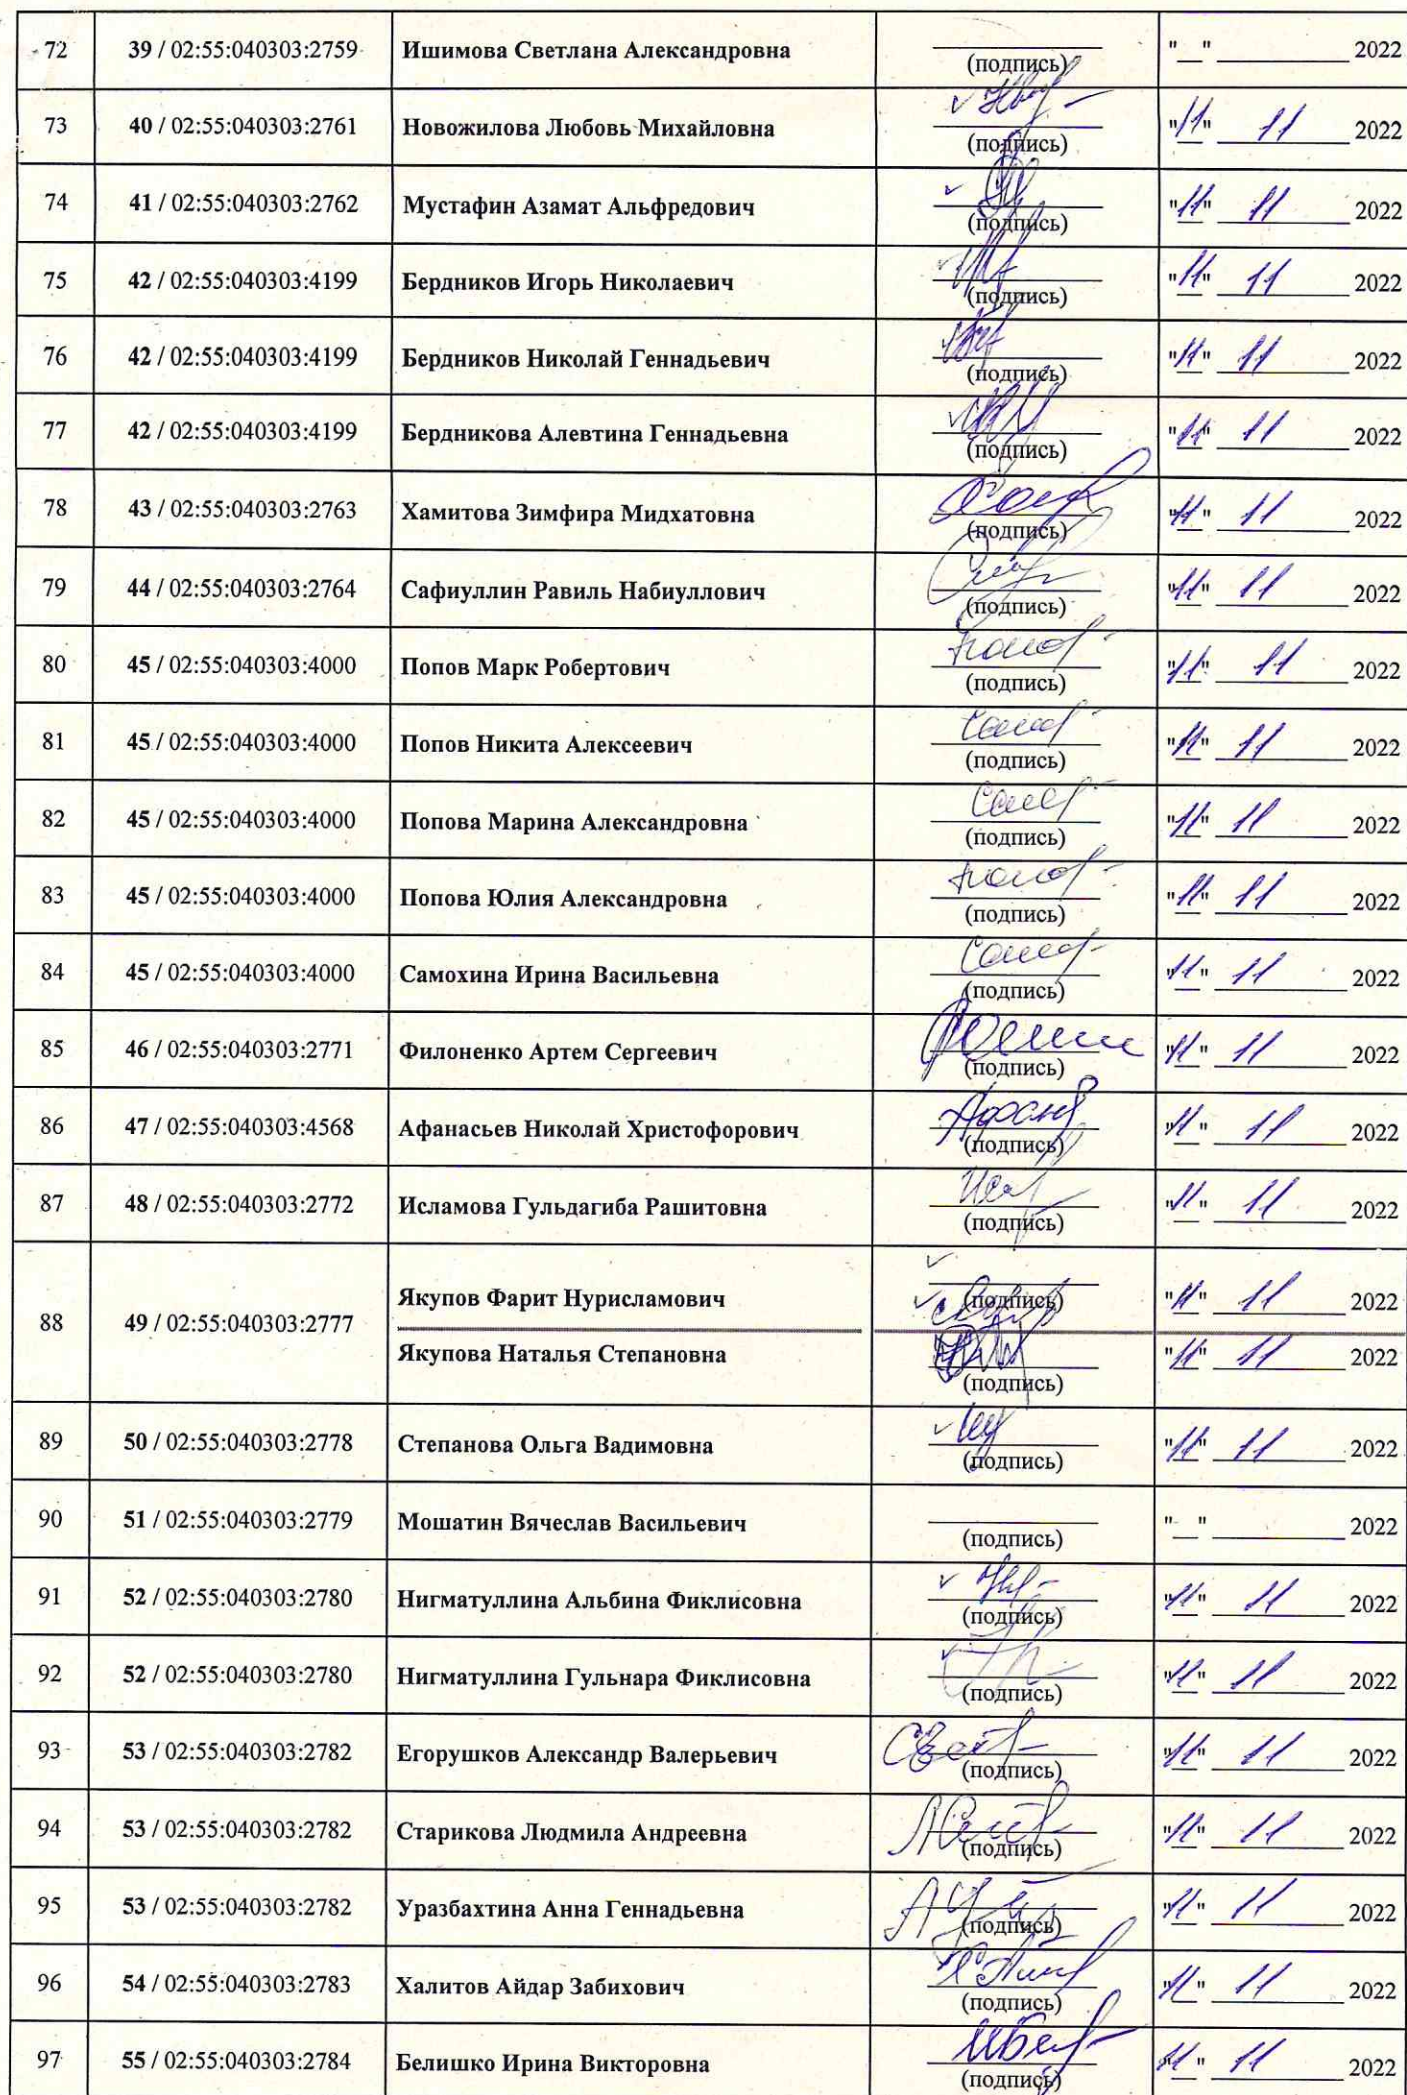 72 39 / 02:55:040303:2759 Ишимова Светлана Александровна (подпись) "__" ________ 2022
73 40 / 02:55:040303:2761 Новожилова Любовь Михайловна (подпись) "11" 11 2022
74 41 / 02:55:040303:2762 Мустафин Азамат Альфредович (подпись) "11" 11 2022
75 42 / 02:55:040303:4199 Бердников Игорь Николаевич (подпись) "11" 11 2022
76 42 / 02:55:040303:4199 Бердников Николай Геннадьевич (подпись) "11" 11 2022
77 42 / 02:55:040303:4199 Бердникова Алевтина Геннадьевна (подпись) "11" 11 2022
78 43 / 02:55:040303:2763 Хамитова Зимфира Мидхатовна (подпись) "11" 11 2022
79 44 / 02:55:040303:2764 Сафиуллин Равиль Набиуллович (подпись) "11" 11 2022
80 45 / 02:55:040303:4000 Попов Марк Робертович (подпись) "11" 11 2022
81 45 / 02:55:040303:4000 Попов Никита Алексеевич (подпись) "11" 11 2022
82 45 / 02:55:040303:4000 Попова Марина Александровна (подпись) "11" 11 2022
83 45 / 02:55:040303:4000 Попова Юлия Александровна (подпись) "11" 11 2022
84 45 / 02:55:040303:4000 Самохина Ирина Васильевна (подпись) "11" 11 2022
85 46 / 02:55:040303:2771 Филоненко Артем Сергеевич (подпись) "11" 11 2022
86 47 / 02:55:040303:4568 Афанасьев Николай Христофорович (подпись) "11" 11 2022
87 48 / 02:55:040303:2772 Исламова Гульдагиба Рашитовна (подпись) "11" 11 2022
88 49 / 02:55:040303:2777 Якупов Фарит Нурисламович (подпись) "11" 11 2022
Якупова Наталья Степановна (подпись) "11" 11 2022
89 50 / 02:55:040303:2778 Степанова Ольга Вадимовна (подпись) "11" 11 2022
90 51 / 02:55:040303:2779 Мошатин Вячеслав Васильевич (подпись) "__" ________ 2022
91 52 / 02:55:040303:2780 Нигматуллина Альбина Фиклисовна (подпись) "11" 11 2022
92 52 / 02:55:040303:2780 Нигматуллина Гульнара Фиклисовна (подпись) "11" 11 2022
93 53 / 02:55:040303:2782 Егорушков Александр Валерьевич (подпись) "11" 11 2022
94 53 / 02:55:040303:2782 Старикова Людмила Андреевна (подпись) "11" 11 2022
95 53 / 02:55:040303:2782 Уразбахтина Анна Геннадьевна (подпись) "11" 11 2022
96 54 / 02:55:040303:2783 Халитов Айдар Забихович (подпись) "11" 11 2022
97 55 / 02:55:040303:2784 Белишко Ирина Викторовна (подпись) "11" 11 2022